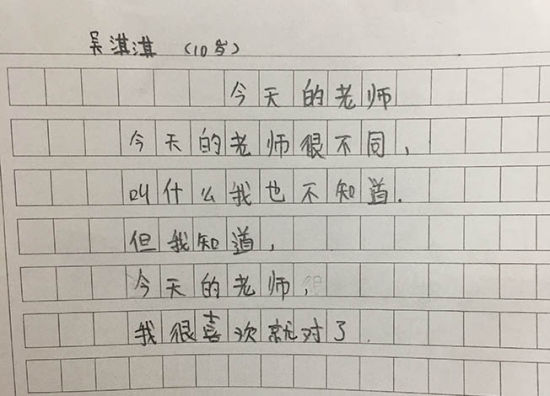 吴淇淇 (10岁)
今天的老师
今天的老师很不同,
叫什么我也不知道.
但我知道,
今天的老师,
我很喜欢就对了.